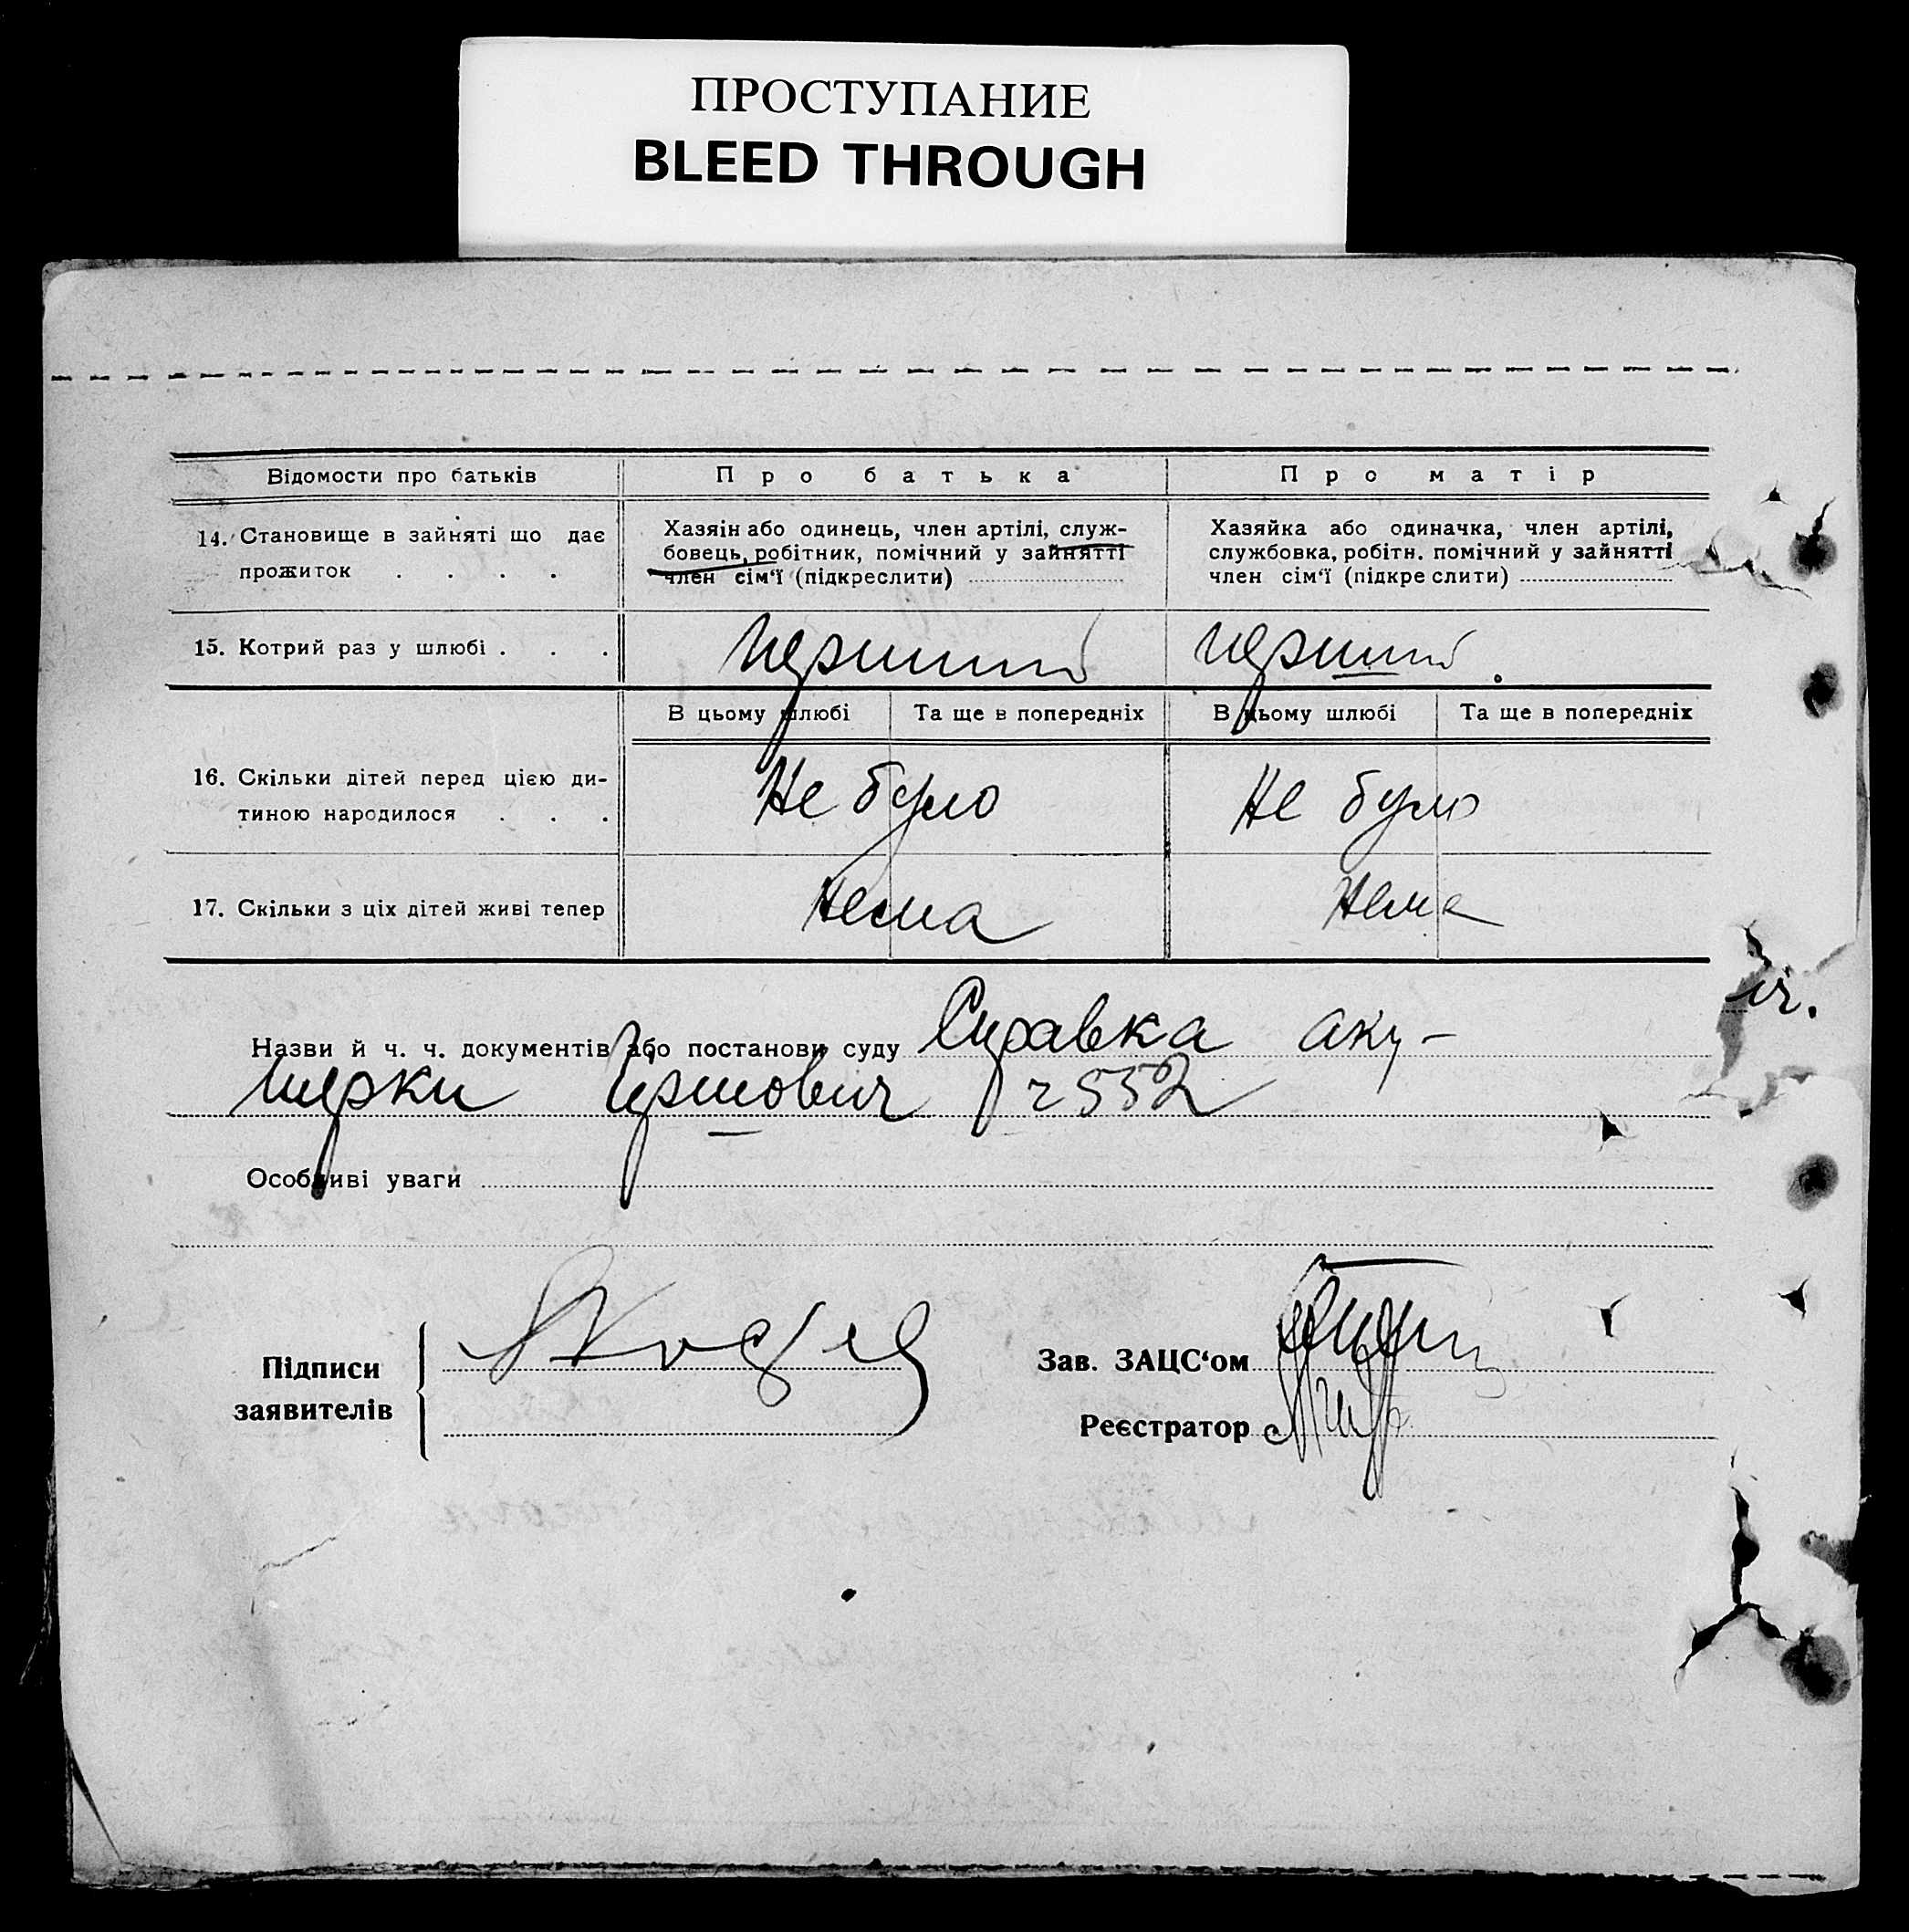 ПРОСТУПАНИЕ
BLEED THROUGH
Відомости про батьків
Про батька
Про матір
14. Становище в зайняті що дає
прожиток . . . .
Хазяін або одинець, член артілі, служ-
бовець, робітник, помічний у зайнятті
член сім'ї (підкреслити)
Хазяйка або одиначка, член артілі,
службовка, робітн. помічний у зайнятті
член сім'ї (підкре слити)
15. Котрий раз у шлюбі . . .
перший
перший
В цьому шлюбі
Та ще в попередніх
В цьому шлюбі
Та ще в попередніх
16. Скільки дітей перед цією ди-
тиною народилося . . .
Не було
Не було
17. Скільки з ціх дітей живі тепер
Нема
Нема
Назви й ч. ч. документів або постанови суду Справка аку-
шерки ч 552
Особливі уваги
Підписи
заявителів
Зав. ЗАЦС'ом
Реєстратор